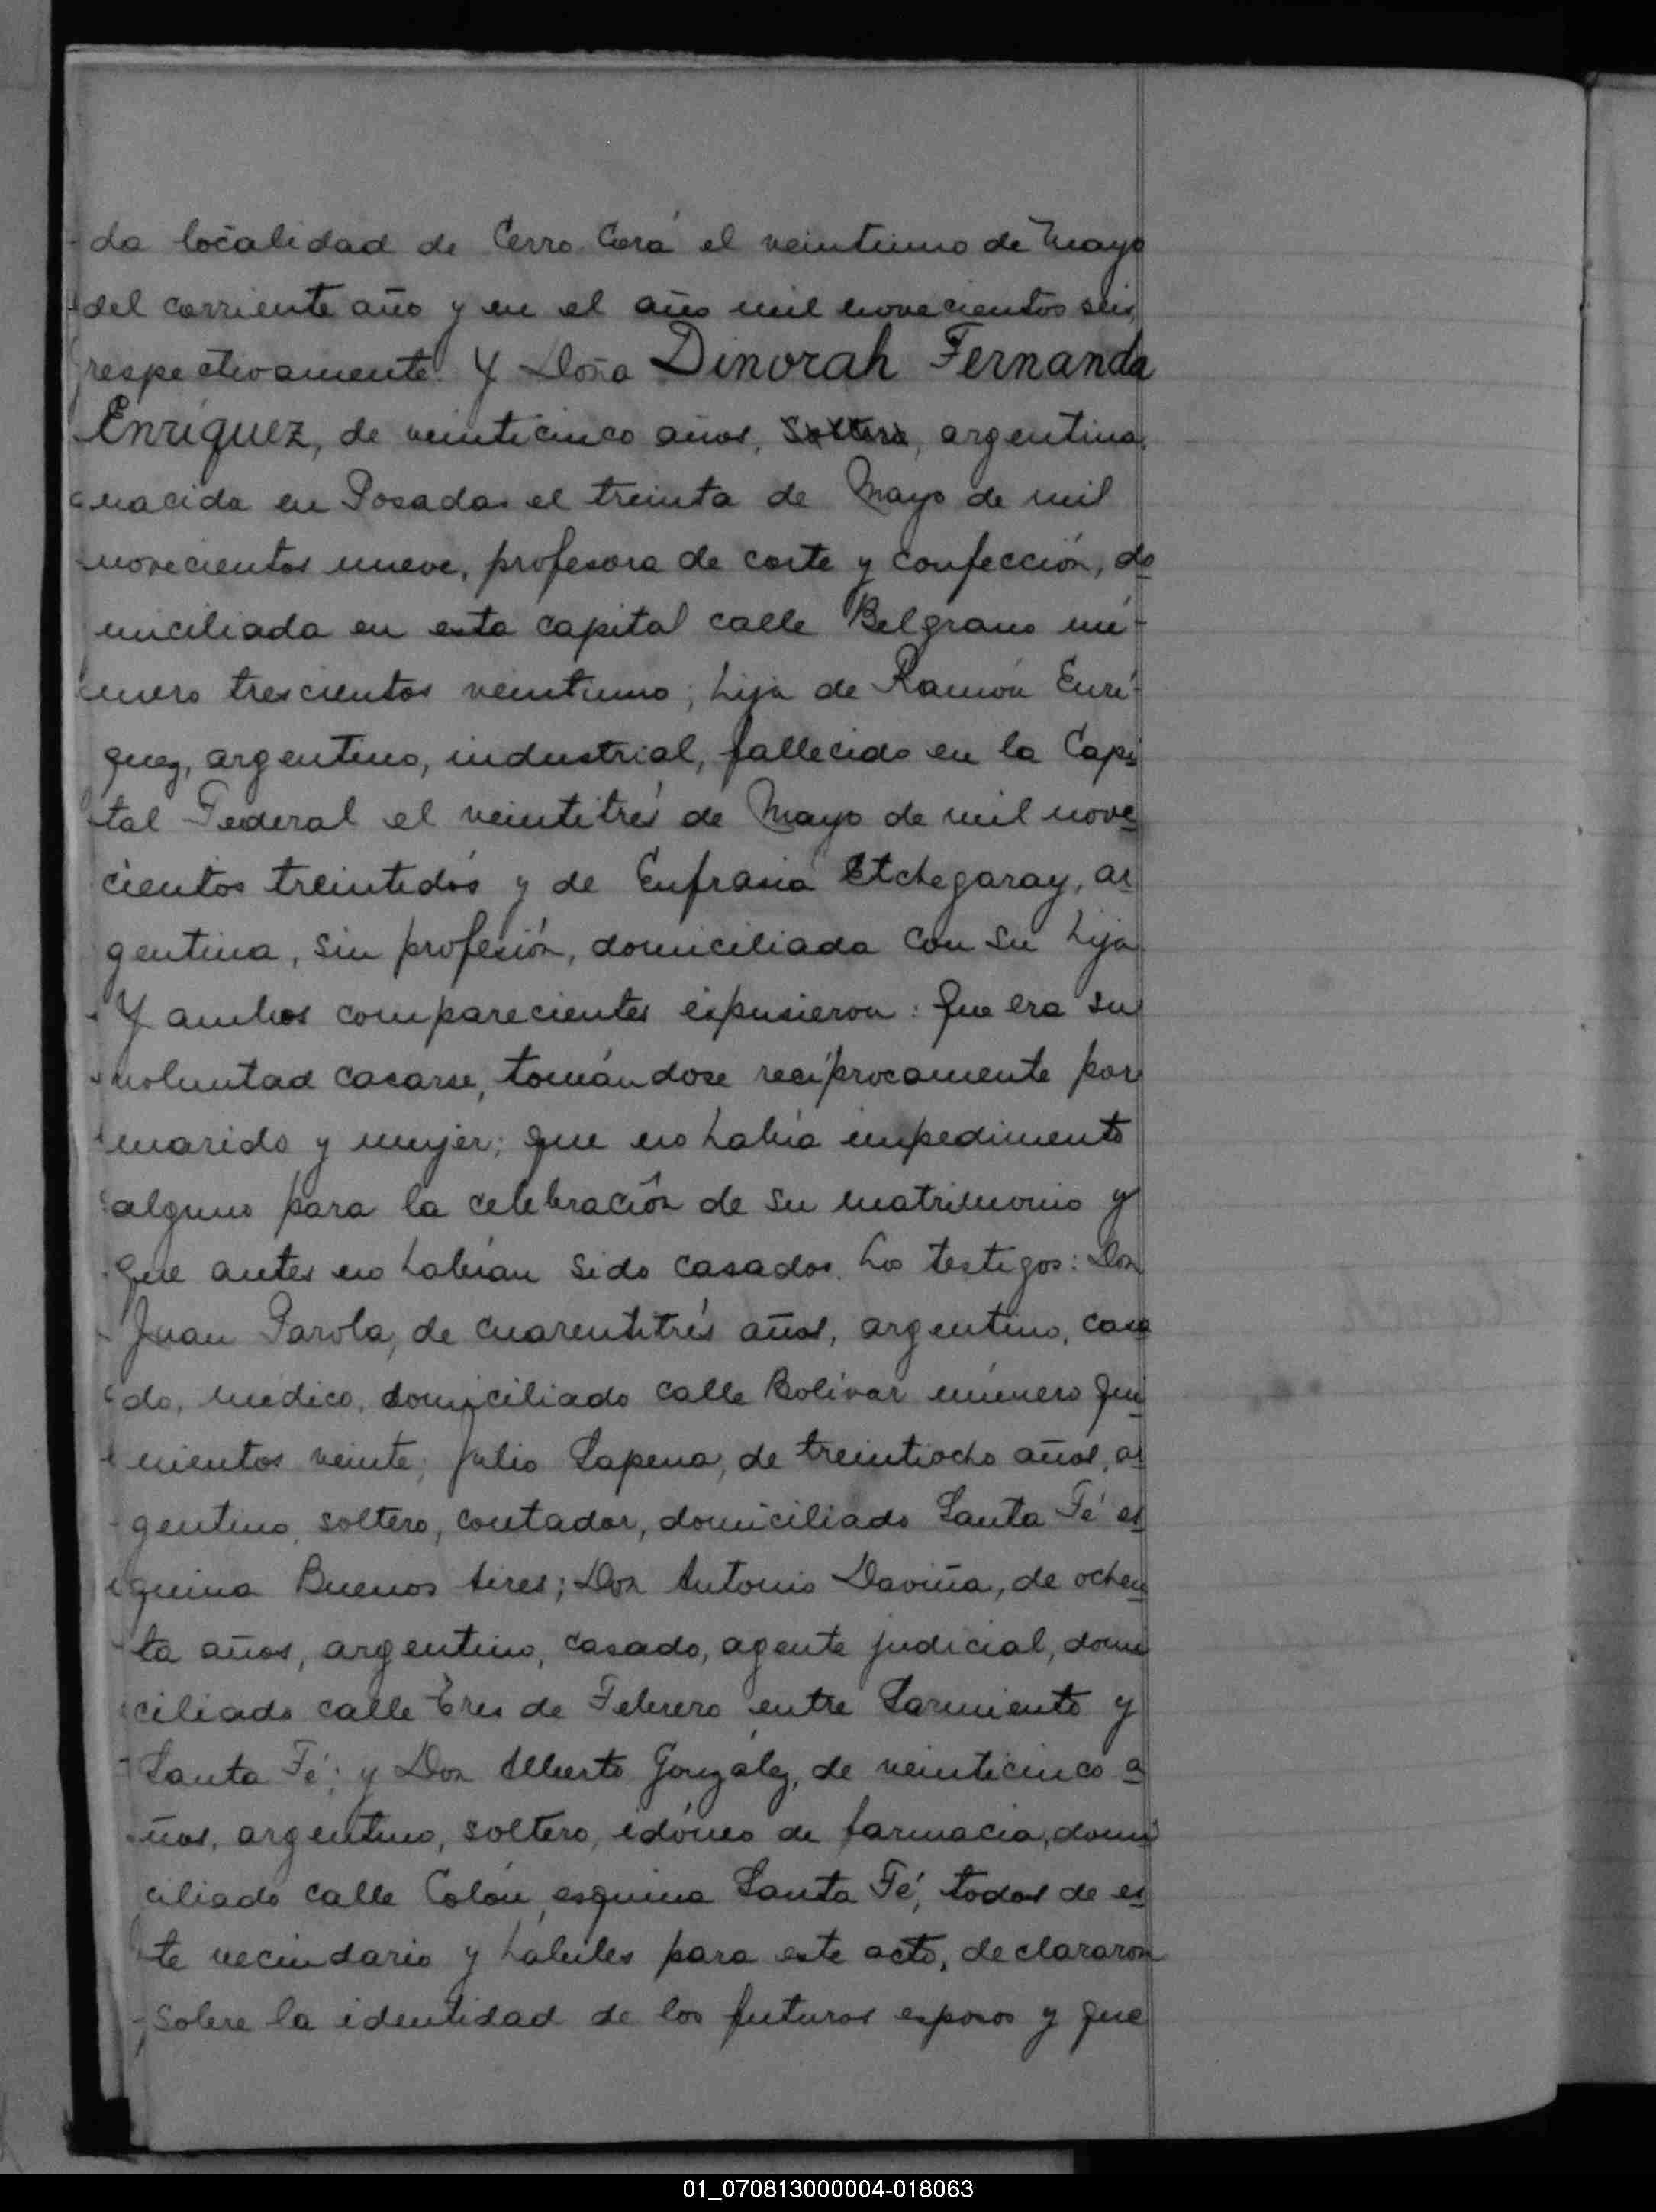 da localidad de Cerro Corá el veintiuno de Mayo
del corriente año y en el año mil novecientos seis,
respectivamente. Y Doña Dinorah Fernanda
Enríquez, de veinticinco años, soltera, argentina,
nacida en Posadas el treinta de Mayo de mil
novecientos nueve, profesora de corte y confección, do
miciliada en esta capital calle Belgrano nú-
mero trescientos veintiuno; hija de Ramón Enrí-
quez, argentino, industrial, fallecido en la Capi
tal Federal el veintitrés de Mayo de mil nove
cientos treintidós y de Eufrasia Etchegaray, ar
gentina, sin profesión, domiciliada con su hija.
Y ambos comparecientes expusieron: Que era su
voluntad casarse, tomándose recíprocamente por
marido y mujer; que no había impedimento
alguno para la celebración de su matrimonio y
que antes no habían sido casados. Los testigos: Don
Juan Parola, de cuarentitrés años, argentino, casa
do, médico, domiciliado calle Bolívar número qui
nientos veinte; Julio Lapena, de treintiocho años, ar
gentino, soltero, contador, domiciliado Santa Fé es
quina Buenos Aires; Don Antonio Daviña, de ochen
ta años, argentino, casado, agente judicial, domi
ciliado calle Tres de Febrero entre Sarmiento y
Santa Fé; y Don Alberto González, de veinticinco a
ños, argentino, soltero, idóneo de farmacia, domi
ciliado calle Colón, esquina Santa Fé, todos de es
te vecindario y hábiles para este acto, declararon
sobre la identidad de los futuros esposos y que
01_070813000004-018063